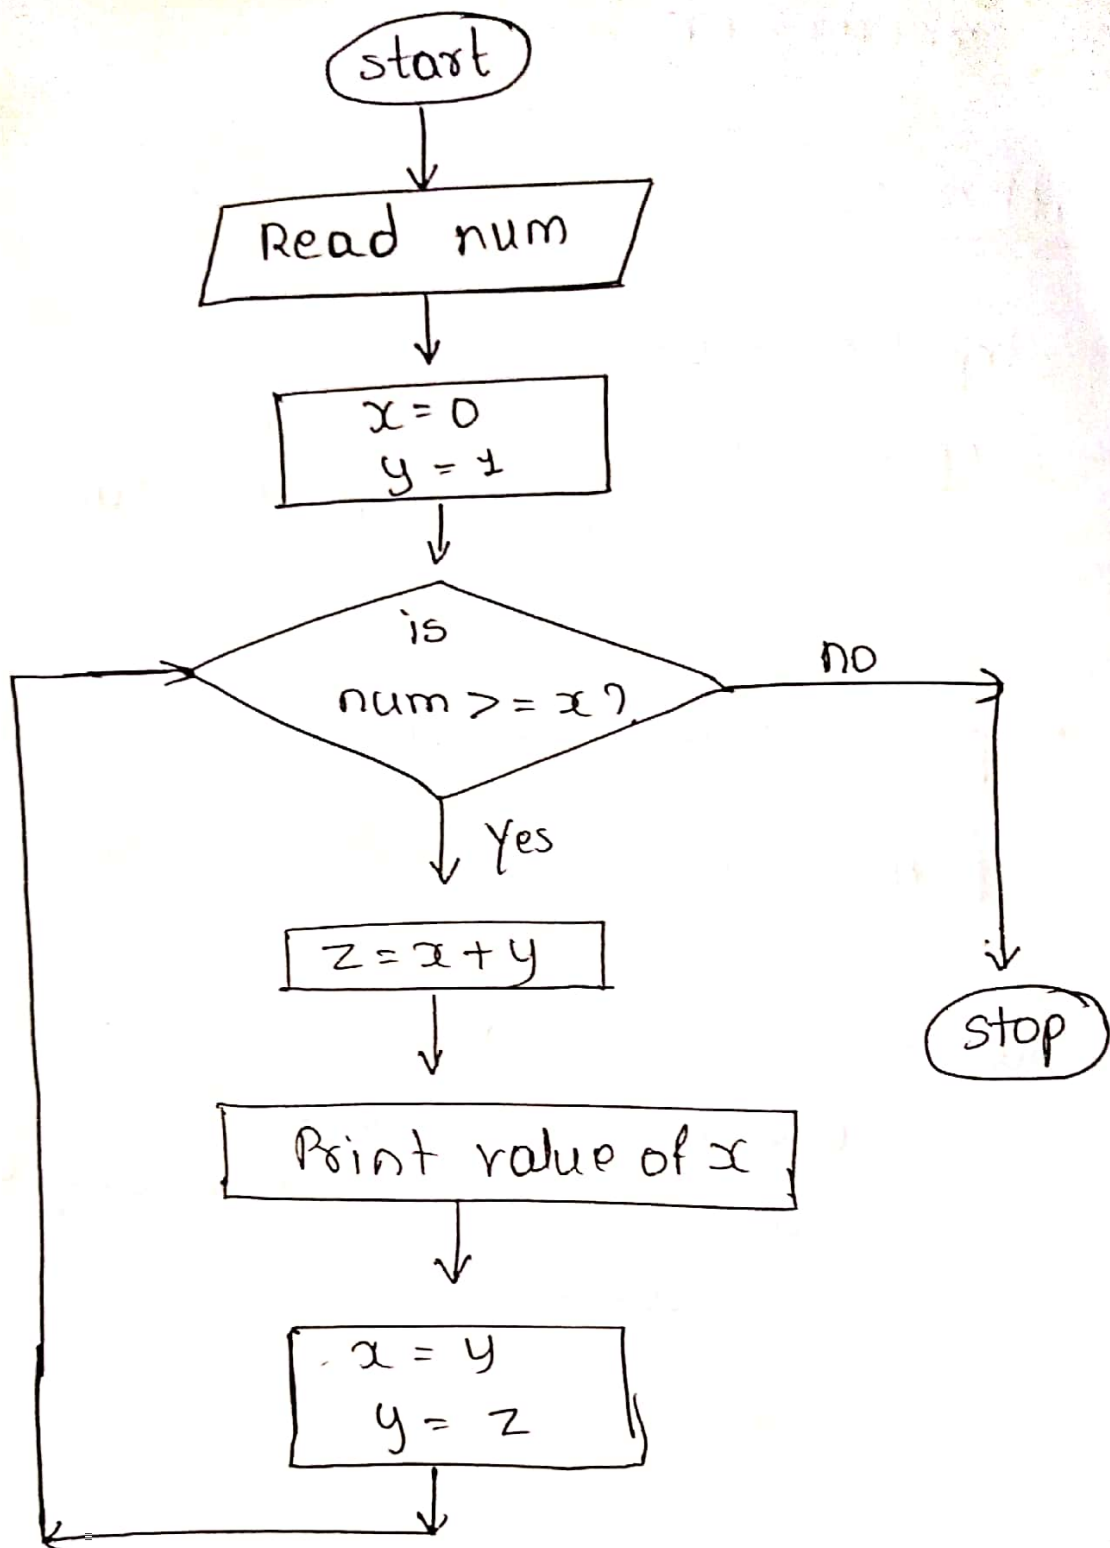 start
Read num
x = 0
y = 1
is
num >= x?
no
Yes
z = x + y
stop
Print value of x
x = y
y = z